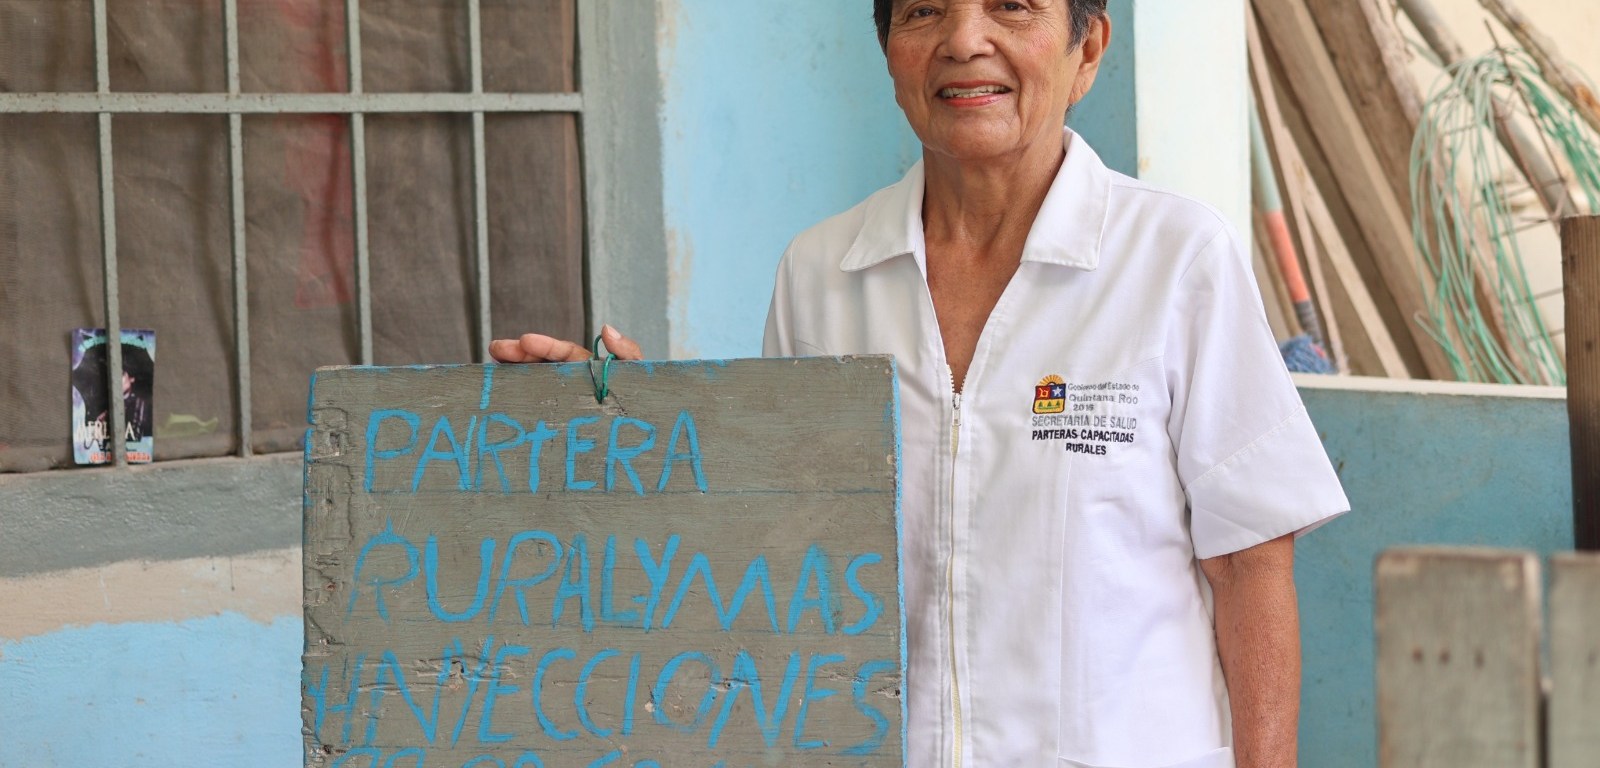 PARTERA
RURAL-YMAS
YINYECCIONES
Gobierno del Estado de
Quintana Roo
2016
SECRETARIA DE SALUD
PARTERAS CAPACITADAS
RURALES